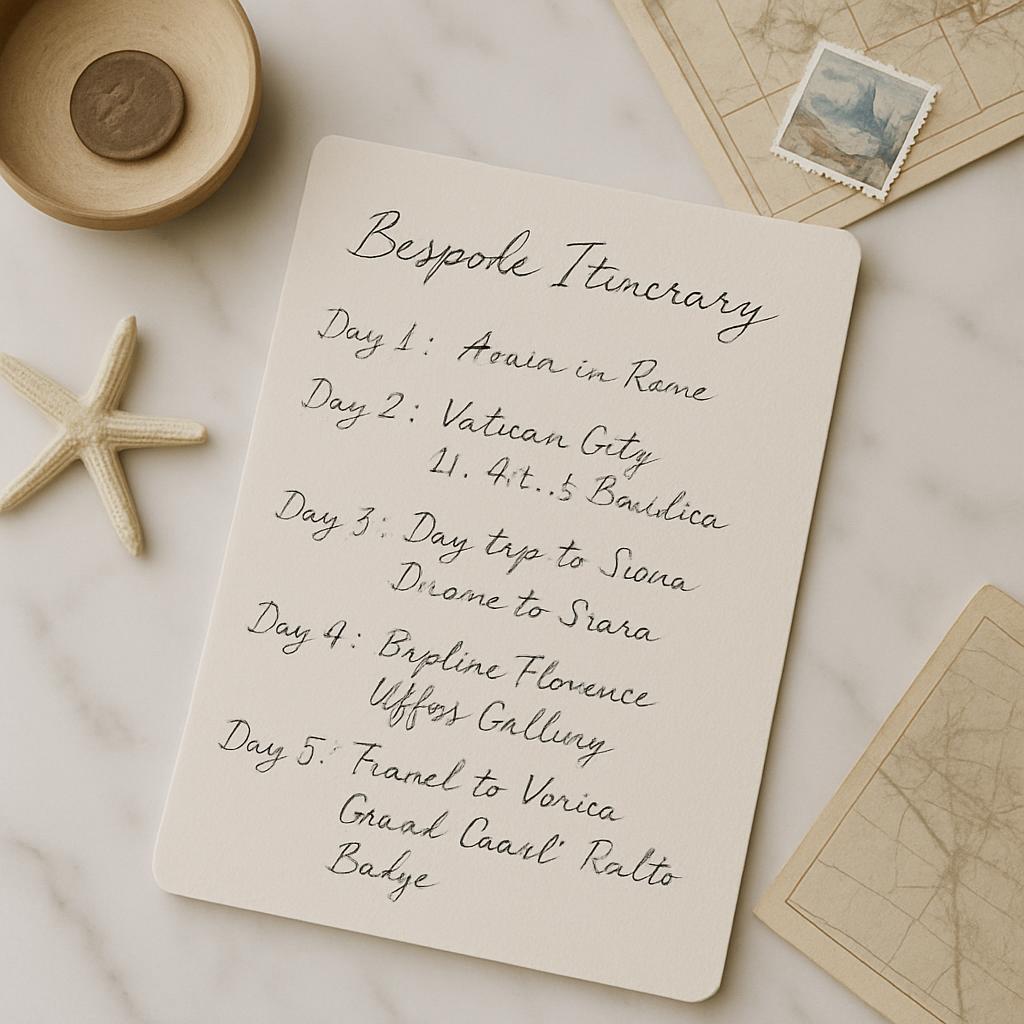 Bespode Itincrary
Day 1: Aoain in Rome
Day 2: Vatican Gity
11. Bauldica
Day 3: Day trp to Siona
Drome to Srara
Day 4: Brpline Florence
Uffoss Gallury
Day 5: Framel to Vorica
Graad Caarl' Ralto
Badye